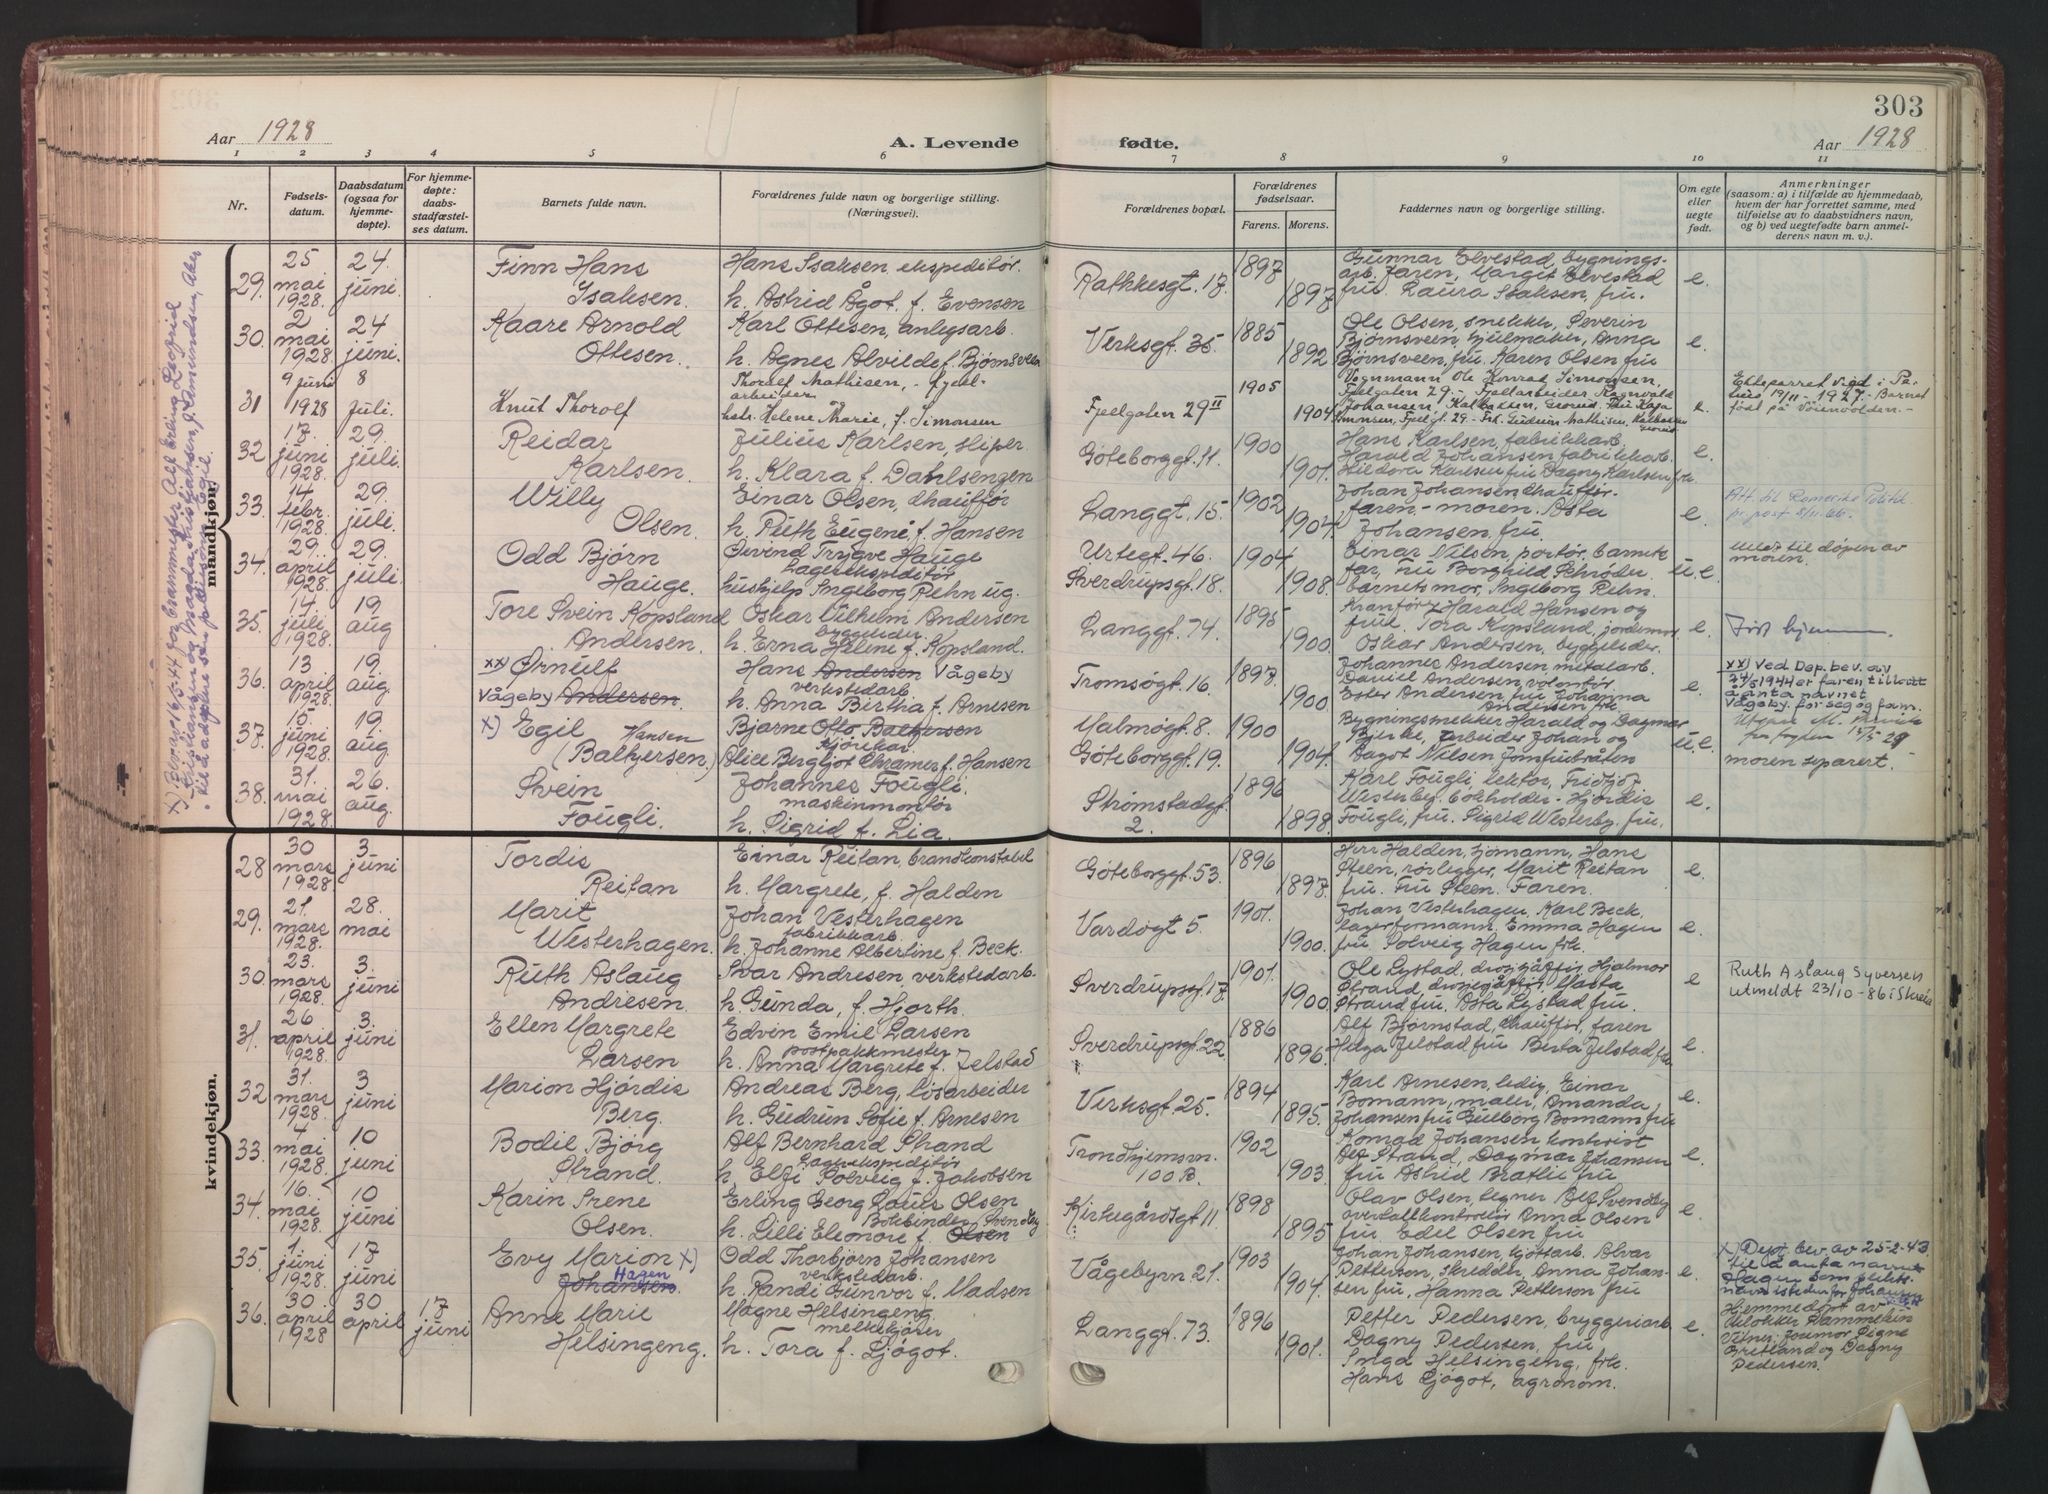 303
Aar 1928
A. Levende
fødte.
Aar 1928
1 2 3 4 5 6 7 8 9 10 11
Nr.
Fødsels-
datum.
Daabsdatum
(ogsaa for
hjemme-
døpte).
For hjemme-
døpte:
daabs-
stadfæstel-
ses datum.
Barnets fulde navn.
Forældrenes fulde navn og borgerlige stilling.
(Næringsvei).
Forældrenes bopæl.
Forældrenes
fødselsaar.
Farens. Morens.
Faddernes navn og borgerlige stilling.
Om egte
eller
uegte
født.
Anmerkninger
(saasom: a) i tilfælde av hjemmedaab,
hvem der har forrettet samme, med
tilføielse av to daabsvidners navn,
og b) ved uegtefødte barn anmel-
derens navn m. v.).
mandkjøn.
29. 25 mai 1928 24. juni.
Finn Hans
Isaksen.
Hans Isaksen, ekspeditør.
h. Astrid Ågot f. Evensen
Rathkesgt. 17. 1897 1897
Gunnar Elvestad, bygnings-
arb. Faren, Margit Elvestad
fru. Laura Isaksen, fru.
e.
30. 2 mai 1928 24 juni.
Kaare Arnold
Ottesen.
Karl Ottesen, anlegsarb.
h. Agnes Alvilde f. Bjørnsveen
Verksgt. 35. 1885 1892
Ole Olsen, snekker, Severin
Bjørnsveen, hjulmaker, Anna
Bjørnsveen, fru. Karen Olsen fru
e.
31 9 juni 1928 8 juli.
Knut Thorolf
Thorolf Mathisen,
arbeider og
hstr. Helene Marie, f. Simonsen
Fjellgaten 29 II 1905 1904
Vognmann Ole Konrad Simonsen,
Fjellgaten 29 - Fjellarbeider Ragnvald
Johansen, Kalbakken, Grorud. Fru Kaja
Simonsen, Fjellg. 29 - Frk. Gudrun Mathisen, Kalbakken
Grorud
e.
Ekteparret viet i Pa-
lus 19/11 - 1927. - Barnet
født på Voienvolden. -
32 17. juni 1928 29. juli.
Reidar
Karlsen.
Julius Karlsen, sliper
h. Klara f. Dahlsengen
Göteborggt. 11. 1900 1901.
Hans Karlsen, fabrikkarb.
Harald Johansen fabrikkarb.
Hildora Karlsen fru Dagny Karlsen frk.
e.
33. 14 febr. 1928 29. juli.
Willy
Olsen.
Einar Olsen, chauffør
h. Ruth Eugenie f. Hansen
Langgt. 15. 1902 1904.
Johan Johansen chauffør-
faren, - moren. Asta
Johansen, fru.
e.
Att. til Romerike Politik.
pr. post 8/11. 66.
34. 29. april 1928 29. juli
Odd Bjørn
Hauge.
Øivind Trygve Hauge
Lagerekspeditør
hushjelp Ingeborg Rehn ug.
Urtegt. 46.
Sverdrupsgt. 18. 1904 1908.
Einar Nilsen, portør, barnets
far, Fru Borghild Schrøder.
barnets mor, Ingeborg Rehn.
u. e.
til dåpen av
moren.
35. 14 juli 1928 19 aug
Tore Svein Kopsland
Andersen.
Oskar Vilhelm Andersen
byggeleder
h. Erna Helene f. Kopsland.
Langgt. 74. 1895 1900.
Kranfører Harald Hansen og
frue. Tora Kopsland, jordemor
Oskar Andersen, byggeleder.
e.
36. 13 april 1928 19. aug.
xx) Ørnulf
Vågeby Andersen
Hans Andersen Vågeby
verkstedarb.
h. Anna Birtha f. Arnesen
Tromsøgt. 16. 1897. 1900
Johannes Andersen metalarb.
Daniel Andersen, volontør
Ester Andersen, fru Johanna
Andersen fru
e.
xx) Ved Dep. bev. av
24/5 1944 er faren tillatt
å anta navnet
Vågeby for seg og fam.
37. 15 juni 1928 19 aug.
x) Egil Hansen
(Baltzersen.)
Bjarne Otto Baltzersen
kjørekar
Alice Bergljot Chramer f. Hansen
Malmøgt. 8.
Göteborggt. 19. 1900 1904.
Bygningssnekker Harald og Dagmar
Bjerke, arbeider Johan og
Dagot Nilsen Jomfrubråten
u. e.
15/5 29
moren separert.
38. 31. mai 1928. 26. aug.
Svein
Fougli.
Johannes Fougli.
maskinmontør
h. Sigrid f. Lia.
Strømstadgt.
2. 1896 1898.
Karl Fougli lektor, Fridtjof
Westerby, bokholder - Hjørdis
Fougli, fru. Sigrid Westerby. fru.
e.
kvindekjøn.
28 30 mars 1928 3. juni
Tordis
Reitan
Einar Reitan, brandkonstabel
h. Margrete, f. Halden
Göteborggt. 53. 1896 1897.
Herr Halden, sjømann, Hans
Steen, rørlegger, Marit Reitan
fru. Fru Steen. Faren.
e.
29. 21. mars 1928. 28. mai
Marit
Westerhagen.
Johan Vesterhagen
fabrikkarb.
h. Johanne Albertine f. Beck.
Vardøgt 5. 1901. 1900.
Johan Vesterhagen, Karl Beck.
lagerformann. Emma Hagen
fru Solveig Hagen frk.
e.
30. 23. mars 1928. 3. juni
Ruth Aslaug
Andresen
Ivar Andresen, verkstedarb.
h. Gunda, f. Hjorth.
Sverdrupsgt. 17. 1901. 1900
Ole Lystad, Hjalmar
Strand, Masta
Strand fru. Asta Lystad fru.
e
Ruth Aslaug Syversen
utmeldt 23/10 - 86 i Skreia
31. 26 april 1928. 3. juni
Ellen Margrete
Larsen
Edvin Emil Larsen
postpakkmester
h. Anna Margrete f. Jelstad
Sverdrupsgt. 22. 1886 1896.
Alf Bjørnstad, chauffør, faren
Helga Jelstad fru Berta Jelstad frk.
e.
32 31. mars 1928. 3 juni
Marion Hjørdis
Berg.
Andreas Berg, løsarbeider
h. Gudrun Sofie f. Arnesen
Verksgt. 25. 1894 1895.
Karl Arnesen, ledig, Einar
Bomann, maler, Amanda
Johansen fru Gulborg Bomann fru
e.
33. 4 mai 1928. 10 juni
Bodil Bjørg
Strand.
Alf Bernhard Strand
Lagerekspeditør
h. Elfi Solveig f. Jakobsen
Trondhjemsvn.
100 B. 1902 1903.
Konrad Johansen kontorist
Alf Strand, Dagmar Johansen
fru Astrid Bratlie fru
e.
34. 16. mai 1928. 10 juni
Karin Irene
Olsen.
Erling Georg Laus Olsen
Bokbinder Svendby
h. Lilli Eleonore f. Olsen
Kirkegårdsgt. 11. 1898 1895
Olav Olsen, tegner Alf Svendby
overkallkontrolør Anna Olsen
fru Edel Olsen fru
e.
35. 1. juni 1928. 17 juni
Evy Marion x)
Hagen
Johansen.
Odd Thorbjørn Johansen
verkstedarb.
h. Randi Gunvor f. Madsen
Vågebyvn. 21. 1903 1904.
Johan Johansen, Alvar
Petterson, skredder, Anna Johan-
sen fru, Hanna Petterson fru
e.
x) Dept. bev. av 25-2-43
til å anta navnet
Hagen som slekts-
navn istedenfor Johansen
36. 30 april 1928 30 april 17 juni
Anne Marie
Helsingeng.
Magne Helsingeng
melkekjører
h. Tora f. Ljøgot.
Langgt. 73. 1896 1901.
Petter Pedersen, bryggeriarb
Dagny Pedersen, fru
Inga Helsingeng, frk.
Hans Ljøgot, agronom.
e.
Hjemmedøpt av
Vitner: Jormor Signe
og Dagny
Pedersen.